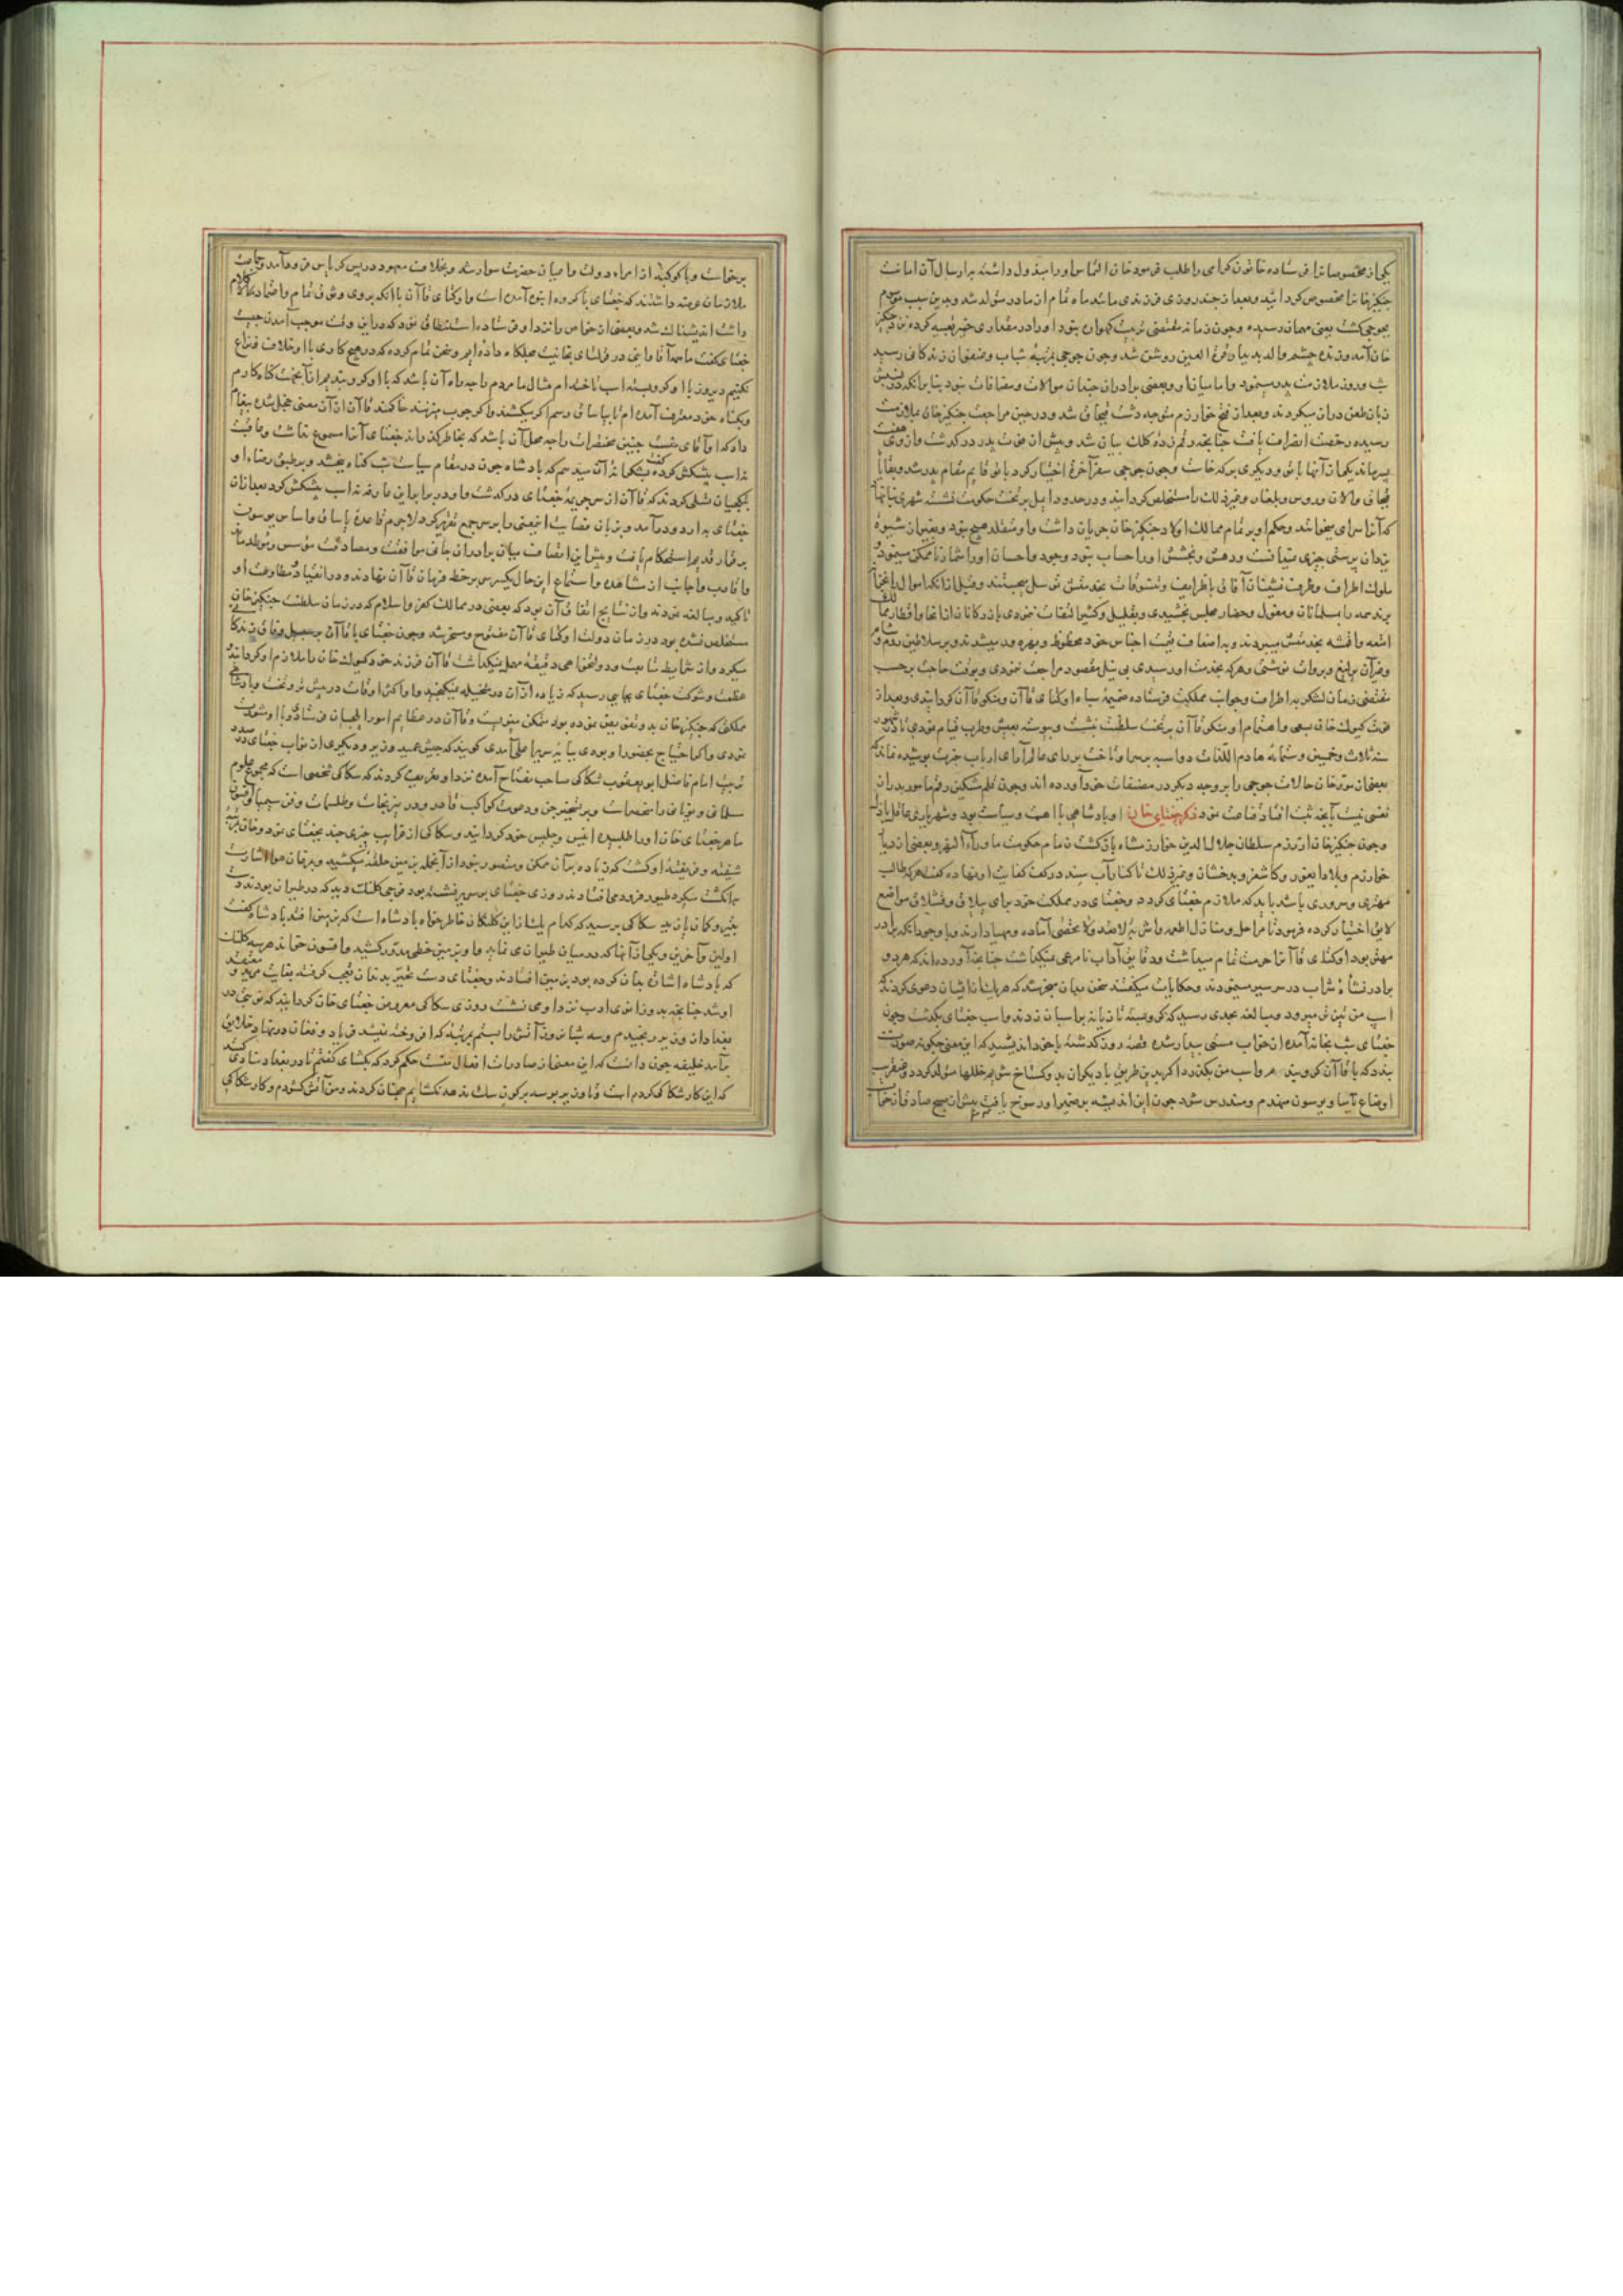 یکی از مخصوصانرا فرستاده خاتون کرامی را طلب فرمود خان التماس او را مبذول داشته بارسال آن امانت
چنکیزخانرا مخصوص کردانید و بعد از چند روزی فرزندی مانند ماه تمام از مادر متولد شد و بدین سبب موسوم
بجوجی کشت یعنی مهمان رسیده و چون زمانه مقتضی تربیت کهواره نبود او را در مقداری خمیر تعبیه کرده نزد چنکیز
خان آمد و دیده چشم والد بدیدار قرة العین روشن شد و چون جوجی بمرتبه شباب و عنفوان زندکانی رسید
شب و روز ملازمت پدر مینمود و اما میان او و بعضی برادران چندان موالات و مصافات نبود بنابر آنکه
زبان طعن در آن میکردند و بعد از فتح خوارزم متوجه دشت قبچاق شد و در حین مراجعت چنکیزخان بملازمت
رسیده رخصت انصراف یافت چنانچه رقم زده کلک بیان شد و پیش از فوت پدر درکذشت و از وی هفت
پسر ماند یکی از آنها باتو و دیکری برکه خان و چون جوجی سفر آخرت اختیار کرد باتو قایم مقام پدر شد و بقایا
قبچاق و الان و روس و بلغار و غیر ذلک را مستخلص کردانید و در حدود ایل بر تخت حکومت نشسته شهری بنا نهاد
که آنرا سرای میخوانند و حکم او بر تمام ممالک اولاد چنکیزخان جریان داشت و او متقلد هیچ نبود و بغیر از شیوهٔ
یزدان پرستی چیزی نمیدانست و دهش و بخشش او را حساب نبود وجود و احسان او را شمار نا ممکن مینمود
ملوک اطراف و ظرف نشینان آفاق باطرایف و تنسوقات بخدمتش توسل میجستند و قبل از آنکه اموال
برند همه را بمسلمانان و مغول و حضار مجلس بخشیدی و بقلیل و کثیر التفات ننمودی بازرکانان از انحا و اقطار
امتعه و اقمشه بخدمتش میبردند و باضعاف قیمت اجناس خود محظوظ و بهره ور میشدند و بر سلاطین روم و شام
و غیرآن یرلیغ و بروات نوشتی و هرکه بخدمت او رسیدی بی نیل مقصود مراجعت ننمودی و بوقت حاجت برحسب
مقتضی زمان لشکر به اطراف و جوانب مملکت فرستاده ضمیمه سپاه اوکتای قاآن و منکو قاآن کردانیدی و بعد از
فوت کیوک خان بسعی و اهتمام او منکو قاآن بر تخت سلطنت نشست و پیوسته بعیش و طرب قیام نمودی تا در
سنه ثلاث و خمسین و ستمائه هادم اللذات دواسبه بر سر او تاخت بر رای عالم آرای ارباب خبرت پوشیده نماند که
بعضی از مورخان حالات جوجی را بر وجه دیکر در مصنفات خود آورده اند و چون قلم مشکین رقم مامور بدان
نفس نیست بآنچه ثبت افتاد قناعت نمود ذکر جغتای خان او پادشاهی با اهبت و سیاست بود و شهریاری عاقل
و چون چنکیزخان از رزم سلطان جلال الدین خوارزمشاه بازکشت زمام حکومت ماوراء النهر و بعضی از دیار
خوارزم و بلاد ایغور و کاشغر و بدخشان و غیر ذلک تا کنار آب سند در کف کفایت او نهاده کفت هرکه طالب
مهتری و سروری باشد باید که ملازم جغتای کردد و جغتای در مملکت خود برای ییلاق و قشلاق مواضع
لایق اختیار کرده فرمود تا مراحل و منازل اطعمه و اشربه لاتعد و لاتحصی آماده و مهیا دارند و با وجود آنکه برادر
مهتر بود اوکتای قاآنرا حرمت تمام میداشت و دقایق آداب نا مرعی نمیکذاشت چنانچه آورده اند که هر دو
برادر نشاۀ شراب در سر سیر مینمودند و حکایات میکفتند سخن بدان منجر شد که هر یک از ایشان دعوی کردند که
اسپ من تیزتر میرود و مبالغه بحدی رسید که کرو بسته تازیانه بر اسبان زدند و اسب جغتای بکذشت و چون
جغتای شب بخانه آمده از خواب مستی بیدار شده قصهٔ روز کذشته با خود اندیشید که این معنی چکونه صورت
بندد که با قاآن کرو بندم و اسب من بکذرد اکر بدین طریق با دیکران بد و کستاخ شویم خللها متولد کردد و عنقریب
اوضاع یاسا و یوسون منهدم و مندرس شود چون این اندیشه بر ضمیر او رسوخ یافت پیش از صبح صادق از خواب
برخواست و با کوکبۀ از امراء دولت و اعیان حضرت سوار شد و بخلاف معهود در پس کریاس فرود آمد و
ملازمان عرضه داشتند که جغتای با کروه انبوه آمده است و اوکتای قاآن با آنکه بروی وثوق تمام و اعتماد
داشت اندیشناک شد و بعضی از خواص را نزد او فرستاده استنطاق نمود که در این وقت موجب آمدن چیست
جغتای کفت ما همه آقا و اینی در قوریلتای بقاآنیت مجلکاء داده ایم و سخن تمام کرده که در هیچ کاری با او خلاف و نزاع
نکنیم دیروز با او کرو بسته اسب تاخته ام مثال ما مردم را چه راه آن باشد که با او کرو بندیم از آنجهت کناه کارم
و بکناه خود معترف آمده ام تا بیاساق رسم اکر میکشند و اکر چوب میزنند حاکمند قاآن از آن معنی خجل شده پیغام
داد که او آقای منست چنین محقرات را چه محل آن باشد که بخاطر کذراند جغتای آنرا مسموع نداشت و عاقبت
نه اسب پیشکش کرده کفت بشکرانه آن میدهم که پادشاه چون در مقام سیاست کناه بخشد و بر طبق رضاء او
بیکچیان تسلی کردند که قاآن از سر جریمه جغتای درکذشت و او در برابر این عارفه نه اسب پیشکش کرد بعد از آن
جغتای به اردو درآمد و بزبان فصاحت اینمعنی را بر سر جمع تقریر کرد لاجرم قاعده یاساق و اساس یوسون
برقرار قدیم استحکام یافت و بیش از این انصاف میان برادران جانی موافقت و مصادقت مؤسس و موطد ماند
و اقارب و اجانب از مشاهده و استماع این حال یکسر سر بر خط فرمان قاآن نهادند و در انقیاد و مطاوعت او
تاکید و مبالغه نمودند و از نتایج اتفاق آن بود که بعضی در ممالک کفر و اسلام که در زمان سلطنت چنکیزخان
مستخلص نشده بود در زمان دولت اوکتای قاآن مفتوح و مسخر شد و چون جغتای با قاآن بر سبیل وفاق زندکانی
میکرد و از شرایط متابعت و دولتخواهی دقیقه مهمل نمیکذاشت قاآن فرزند خود کیوک خان را ملازم او کردانید
عظمت و شوکت جغتای بجایی رسید که زیاده از آن در متخیله نمیکنجید و او اکثر اوقات در بیش بر و تخت پادشاهی
مملکتی که چنکیزخان بدو تفویض نموده بود متمکن میبود و قاآن در عظایم امور ایلچیان فرستاده با او مشورت
نمودی و اکر احتیاج بحضور او بودی بپایه سریر اعلی آمدی کویند که جیش عمید وزیر و دیکری از نواب جغتای
تربیت امام فاضل ابو یعقوب سکاکی صاحب مفتاح آمده نزد او تعریف کردند که سکاکی شخصی است که مجموع علوم
سماوی و یونانی را مستحضر است و بر تسخیر جن و دعوت کواکب قادر و در نیرنجات و طلسمات و فن سیمیا
ماهر جغتای خان او را طلبیده انیس و جلیس خود کردانید و سکاکی از غرایب چیزی چند بجغتای نمود و خان
شیفته و فریفته او کشت که زیاده بر آن ممکن و متصور نبود از آنجمله بر زمین حلقه میکشید و بر مرغان هوا اشارت
بانکشت میکرد طیور فرود می افتادند روزی جغتای بر سریر نشسته بود فوجی کلنک دید که در طیران بودند
تیر و کمان سکاکی پرسید که کدام یک از این کلنکان خاطرخواه پادشاه است که بر زمین افتد پادشاه کفت
اولین و آخرین و یکی از آنها که در میان طیران می نماید و او بر زمین خطی مدور کشید و افسون خواند هر سه کلنک
که پادشاه اشارت بدان کرده بود بر زمین افتادند و جغتای دست تحیر بدندان تعجب کرفته بغایت مرید و معتقد
او شد چنانچه بدو زانوی ادب نزد او می نشست روزی سکاکی معروض جغتای خان کردانید که من در
بغداد از وزیر رنجیدم و سه شبانروز آتش را ببستم بمرتبه که افروخته نمیشد فریاد و فغان در نهاد خلایق
برآمد خلیفه چون دانست که این معنی از صادرات افعال منست حکم کرد که بکشای کفتم تا در بغداد منادی کنند
که این کار سکاکی کرده است و تا وزیر بوسه بر کون سک ندهد نکشایم همچنان کردند و من آتش کشودم و کار سکاکی